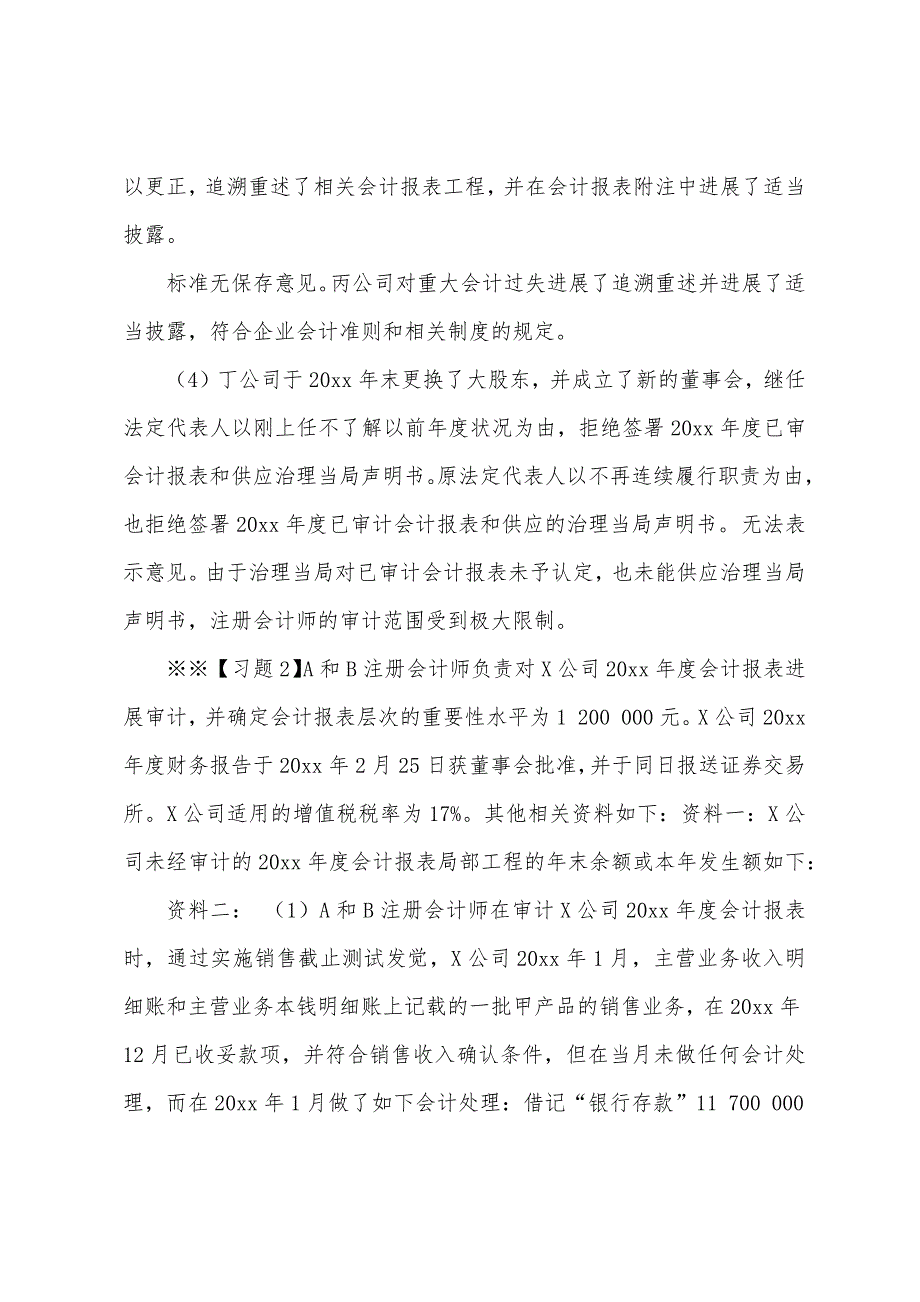 以更正，追溯重述了相关会计报表工程，并在会计报表附注中进展了适当
披露。
标准无保存意见。丙公司对重大会计过失进展了追溯重述并进展了适
当披露，符合企业会计准则和相关制度的规定。
（4）丁公司于 20xx 年末更换了大股东，并成立了新的董事会，继任
法定代表人以刚上任不了解以前年度状况为由，拒绝签署 20xx 年度已审
会计报表和供应治理当局声明书。原法定代表人以不再连续履行职责为由，
也拒绝签署 20xx 年度已审计会计报表和供应的治理当局声明书。 无法表
示意见。由于治理当局对已审计会计报表未予认定，也未能供应治理当局
声明书，注册会计师的审计范围受到极大限制。
※※【习题 2】A 和 B 注册会计师负责对 X 公司 20xx 年度会计报表进
展审计，并确定会计报表层次的重要性水平为 1 200 000 元。X 公司 20xx
年度财务报告于 20xx 年 2 月 25 日获董事会批准，并于同日报送证券交易
所。X 公司适用的增值税税率为 17%。其他相关资料如下：资料一：X 公
司未经审计的 20xx 年度会计报表局部工程的年末余额或本年发生额如下：
资料二： （1）A 和 B 注册会计师在审计 X 公司 20xx 年度会计报表
时，通过实施销售截止测试发觉，X 公司 20xx 年 1 月，主营业务收入明
细账和主营业务本钱明细账上记载的一批甲产品的销售业务，在 20xx 年
12 月已收妥款项，并符合销售收入确认条件，但在当月未做任何会计处
理，而在 20xx 年 1 月做了如下会计处理：借记“银行存款”11 700 000